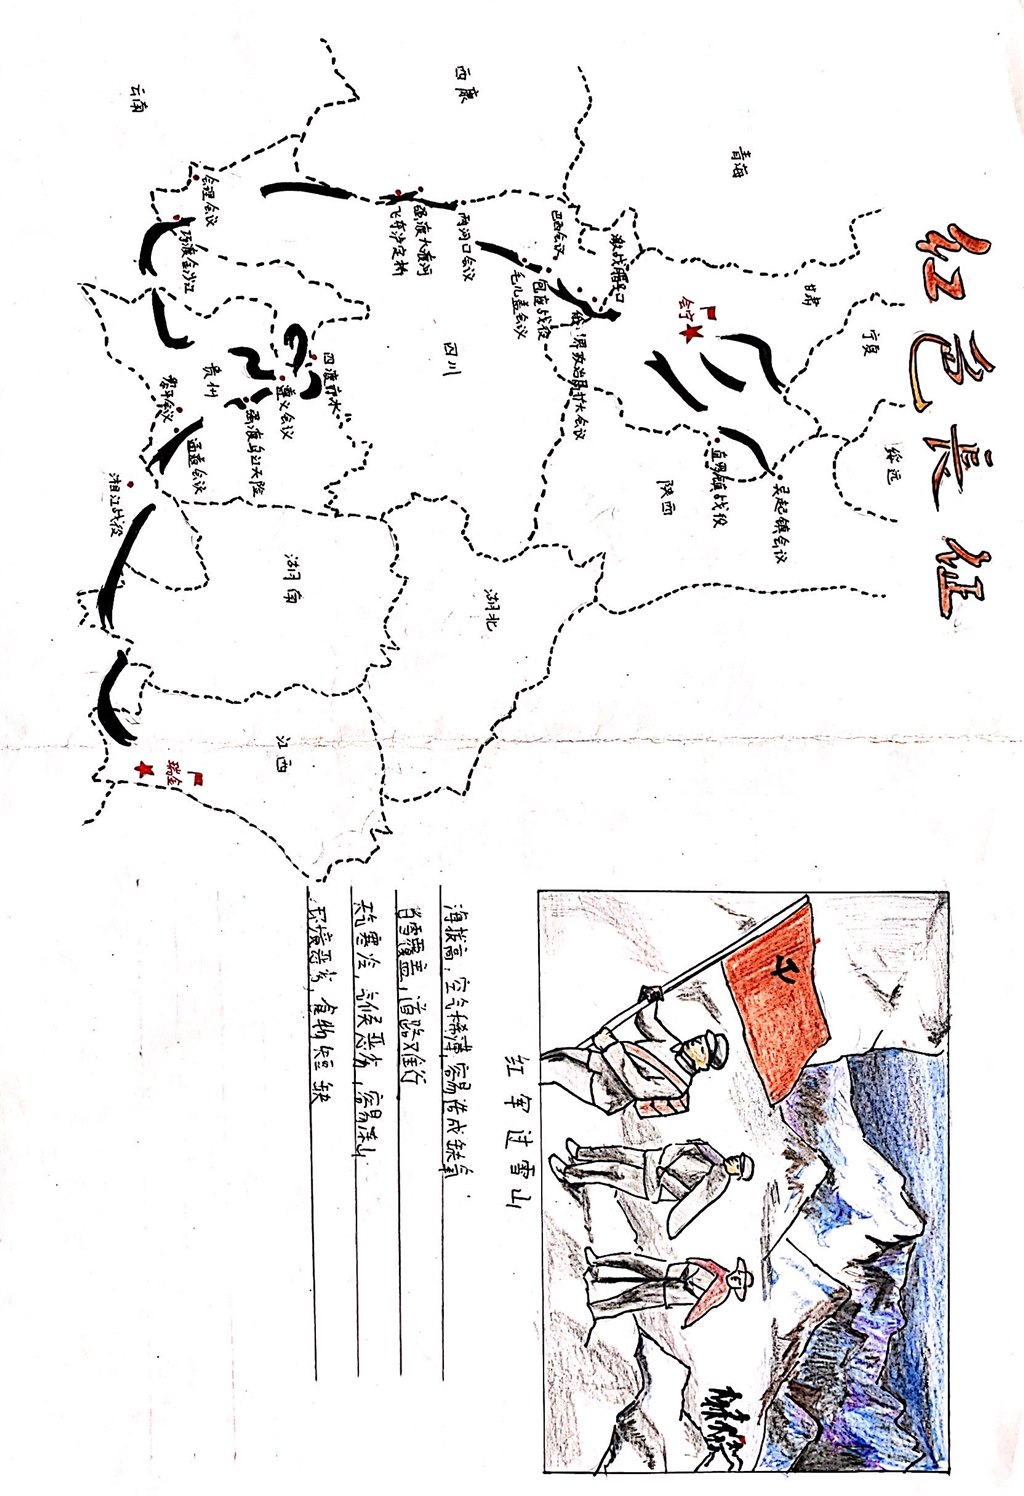 红色长征
青海
西康
云南
甘肃
宁夏
绥远
陕西
四川
贵州
湖南
湖北
江西
会宁
瑞金
激战腊子口
巴西会议
俄界政治局扩大会议
包座战役
毛儿盖会议
两河口会议
强渡大渡河
飞夺泸定桥
会理会议
巧渡金沙江
四渡赤水
遵义会议
强渡乌江天险
黎平会议
通道会议
湘江战役
直罗镇战役
吴起镇会议
红军过雪山
海拔高，空气稀薄，容易造成缺氧
白雪覆盖，道路难行
天气寒冷，气候恶劣，容易冻
环境恶劣，食物短缺